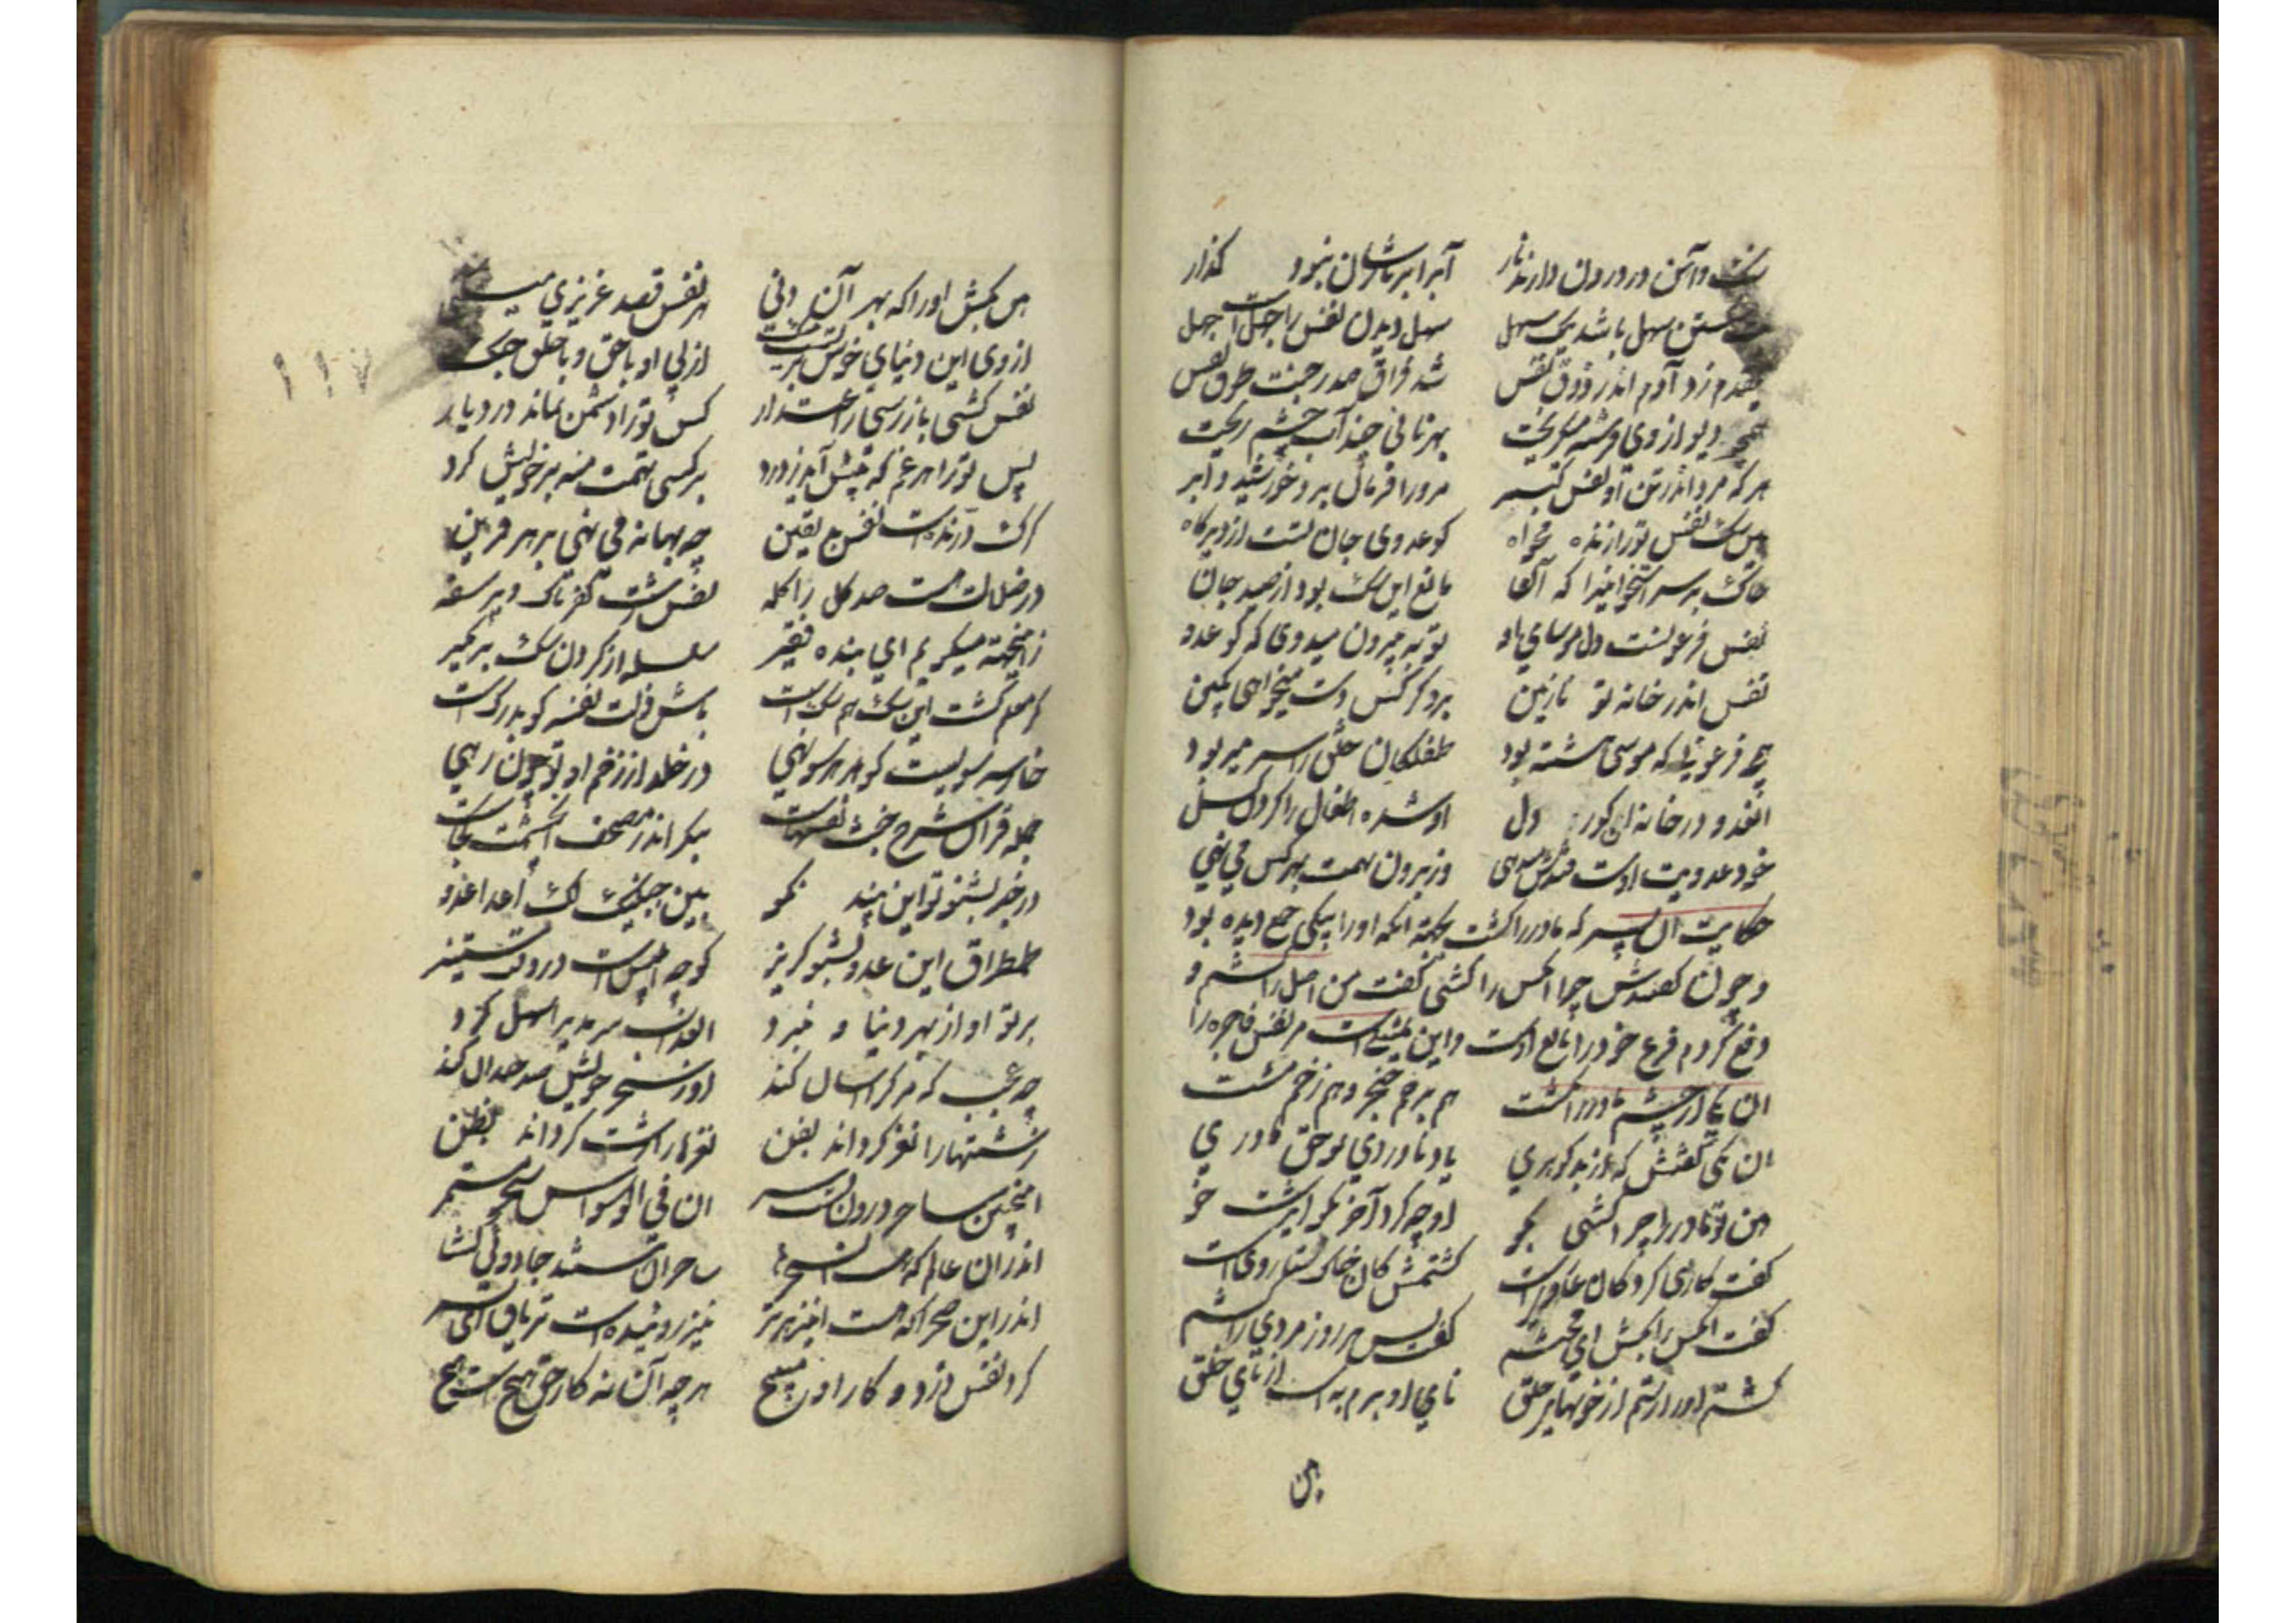 سنگ و آهن در درون دارند نار آبرا بر نارشان نبود گذار
شکستن سهل باشد نیک سهل سهل دیدن نفس را جهلست جهل
یکقدم زد آدم اندر ذوق نفس شد فراق صدر جنت طوق نفس
همچو دیو از وی فرشته میگریخت بهر نانی چند آب چشم ریخت
هر که مرد اندر تن او نفس گبر مرورا فرمان برد خورشید و ابر
هین سگ نفس تورا زنده مخواه کو عدوی جان تست از دیرگاه
خاک بر سر استخوانیرا که آن مانع این سگ بود از صید جان
نفس فرعونست دل موسای او تو به بیرون میدوی که کو عدو
نفس اندر خانه تو نازنین بر دگر کس دست میخواهی بکین
همچو فرعونی که موسی هشته بود طفلکان خلق را سر میربود
آنعدو در خانه آن کور دل او شده اطفال را گردن گسل
خود عدویت اوست قندش میدهی وز برون تهمت بهر کس می نهی
حکایت آن پسر که مادر را کشت بجهة آنکه او را بیکی جمع دیده بود
و چون گفتندش چرا آنکس را نکشتی گفت من اصل را کشتم و
دفع کردم فرع خود را تابع اوست و این تمثیل است مر نفس فاجره را
آن یکی از خشم مادر را بکشت هم بزخم خنجر و هم زخم مشت
آن یکی گفتش که از بد گوهری یاد ناوردی تو حق مادری
هین تو مادر را چرا کشتی بگو او چه کرد آخر بگو ای زشت خو
گفت کاری کرد کان عار ویست کشتمش کان خاک ستار ویست
گفت آنکس را بکش ای محتشم گفت پس هر روز مردی را کشم
کشتم او را رستم از خونهای خلق نای او برم به است از نای خلق
هین
١١٧
هین بکش او را که بهر آن دنی هر نفس قصد عزیزی میکنی
از وی این دنیای خوش بر تست تنگ از پی او با حق و با خلق جنگ
نفس کشتی باز رستی ز اعتذار کس تورا دشمن نماند در دیار
پس تورا هر غم که پیش آید ز درد بر کسی تهمت منه بر خویش گرد
گرگ درنده است نفس بد یقین چه بهانه می نهی بر هر قرین
در ضلالت هست صد کل را کله نفس زشت کفرناک و پر سفه
زینجهة میگویم ای بنده فقیر سلسله از گردن سگ بر مگیر
گر معلم گشت این سگ هم سگ است باش ذلت نفسه کو بدرگ است
خار سه سویست کو هر هر سو نهی در خلد از زخم او تو چون رهی
جمله قرآن شرح خبث نفسهاست بنگر اندر مصحف آن چشمت کجاست
در خبر بشنو تو این پند نکو بین جنبیکم لکم اعدا عدو
طمطراق این عدو مشنو گریز کو چو ابلیس است در روی ستیز
بر تو او از بهر دنیا و نبرد آنعذاب سرمدی را سهل کرد
چه عجب گر مرگ را آسان کند او ز سحر خویش صد چندان کند
زشتها را نغز گرداند بفن نغزها را زشت گرداند بظن
اینچنین ساحر درون تست سر ان فی الوسواس سحرا مستتر
اندر آن عالم که هست این سحرها ساحران هستند جادوئی گشا
اندر این صحرا که هست این زهر تر نیز روئیده است تریاق ای پسر
گرد نفس دزد و کار او مپیچ هر چه آن نه کار حق هیچ است هیچ